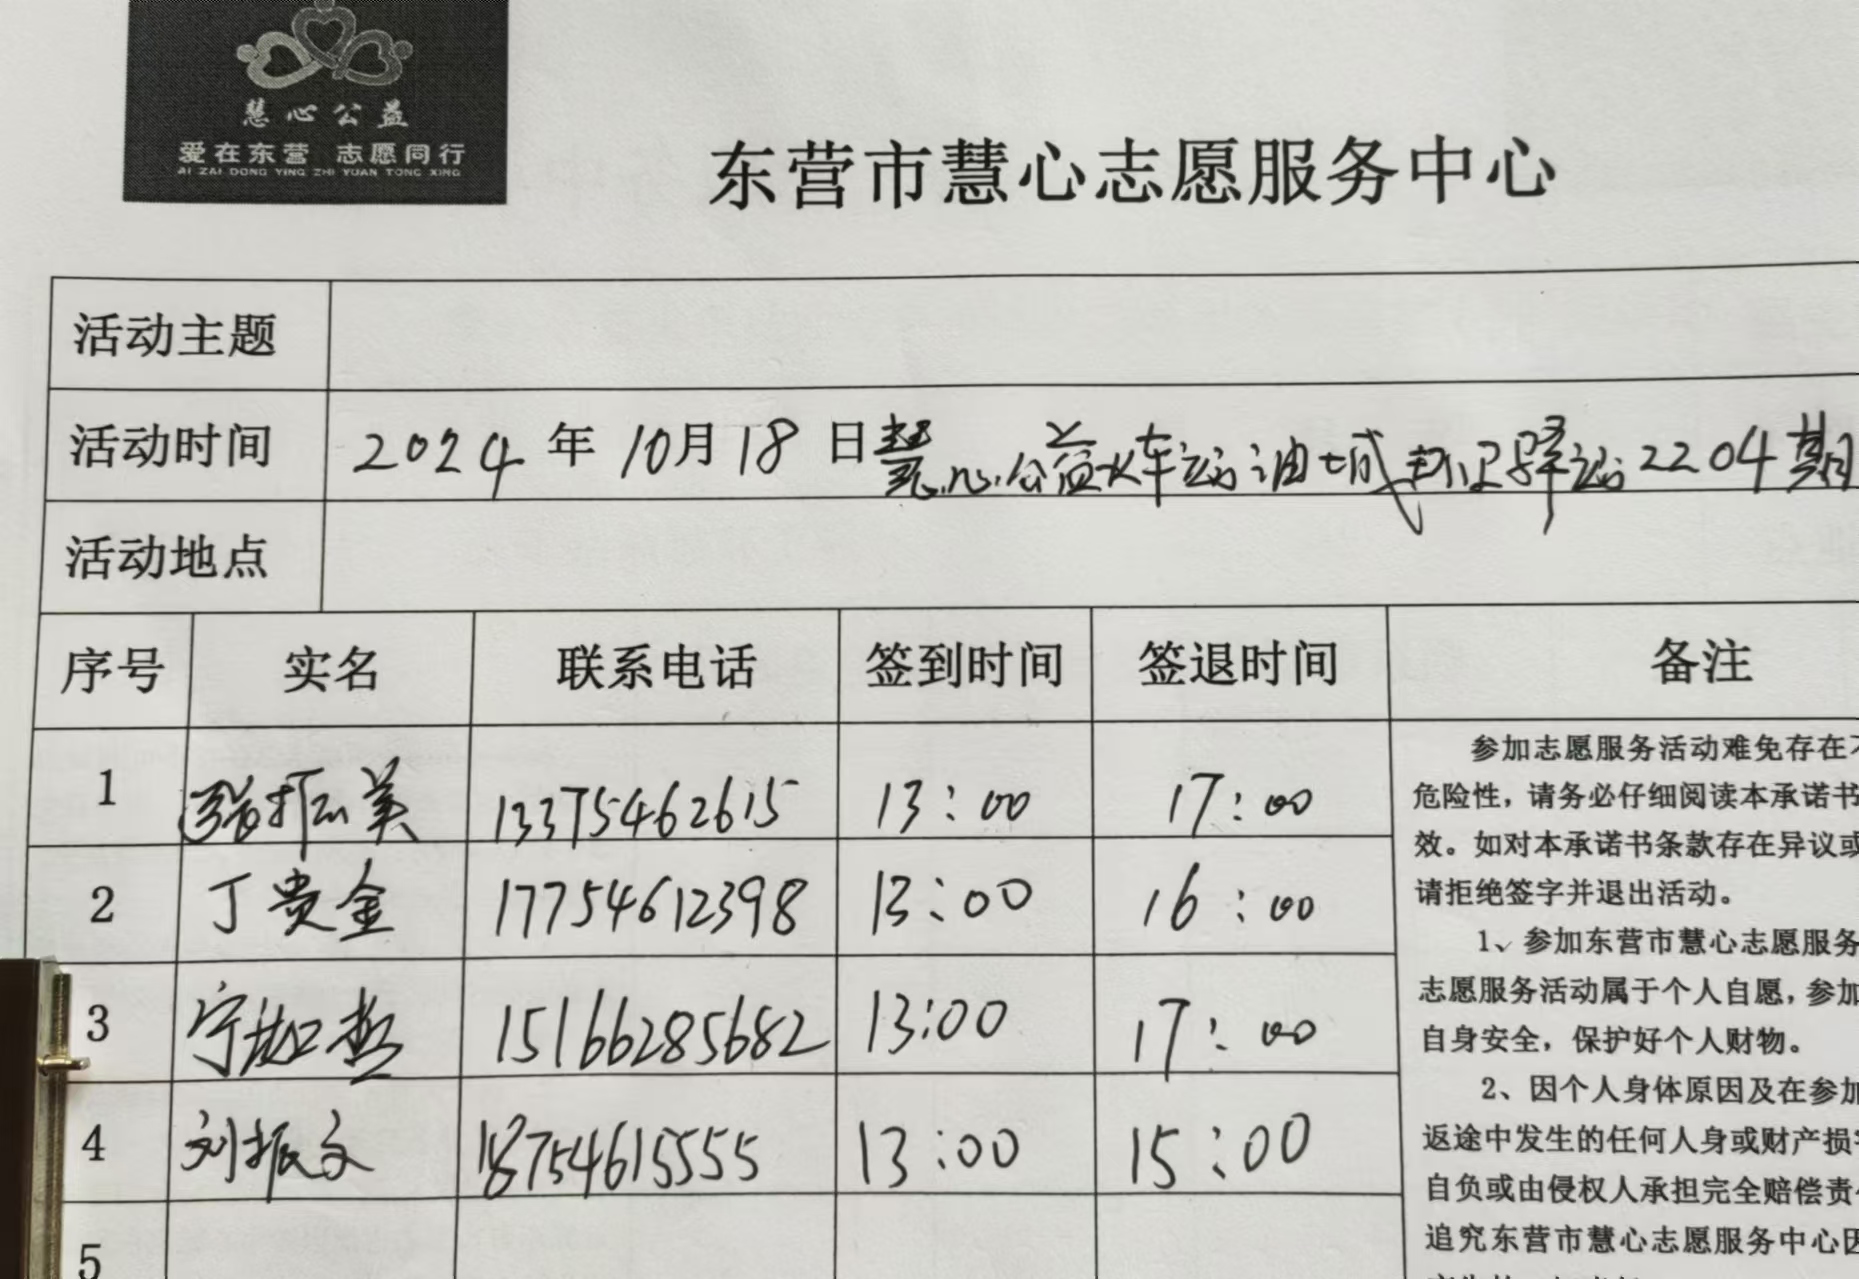 慧心公益
爱在东营 志愿同行
AI ZAI DONG YING ZHI YUAN TONG XING
东营市慧心志愿服务中心
活动主题
活动时间 2024 年 10 月 18 日 慧心公益火车站油城环卫驿站2204期
活动地点
序号 实名 联系电话 签到时间 签退时间 备注
1 振美 13375462615 13:00 17:00
2 丁贵金 17754612398 13:00 16:00
3 宁 15166285682 13:00 17:00
4 刘振文 18754615555 13:00 15:00
5
参加志愿服务活动难免存在
危险性,请务必仔细阅读本承诺书
效。如对本承诺书条款存在异议或
请拒绝签字并退出活动。
1、参加东营市慧心志愿服务
志愿服务活动属于个人自愿,参加
自身安全,保护好个人财物。
2、因个人身体原因及在参加
返途中发生的任何人身或财产损
自负或由侵权人承担完全赔偿责
追究东营市慧心志愿服务中心因